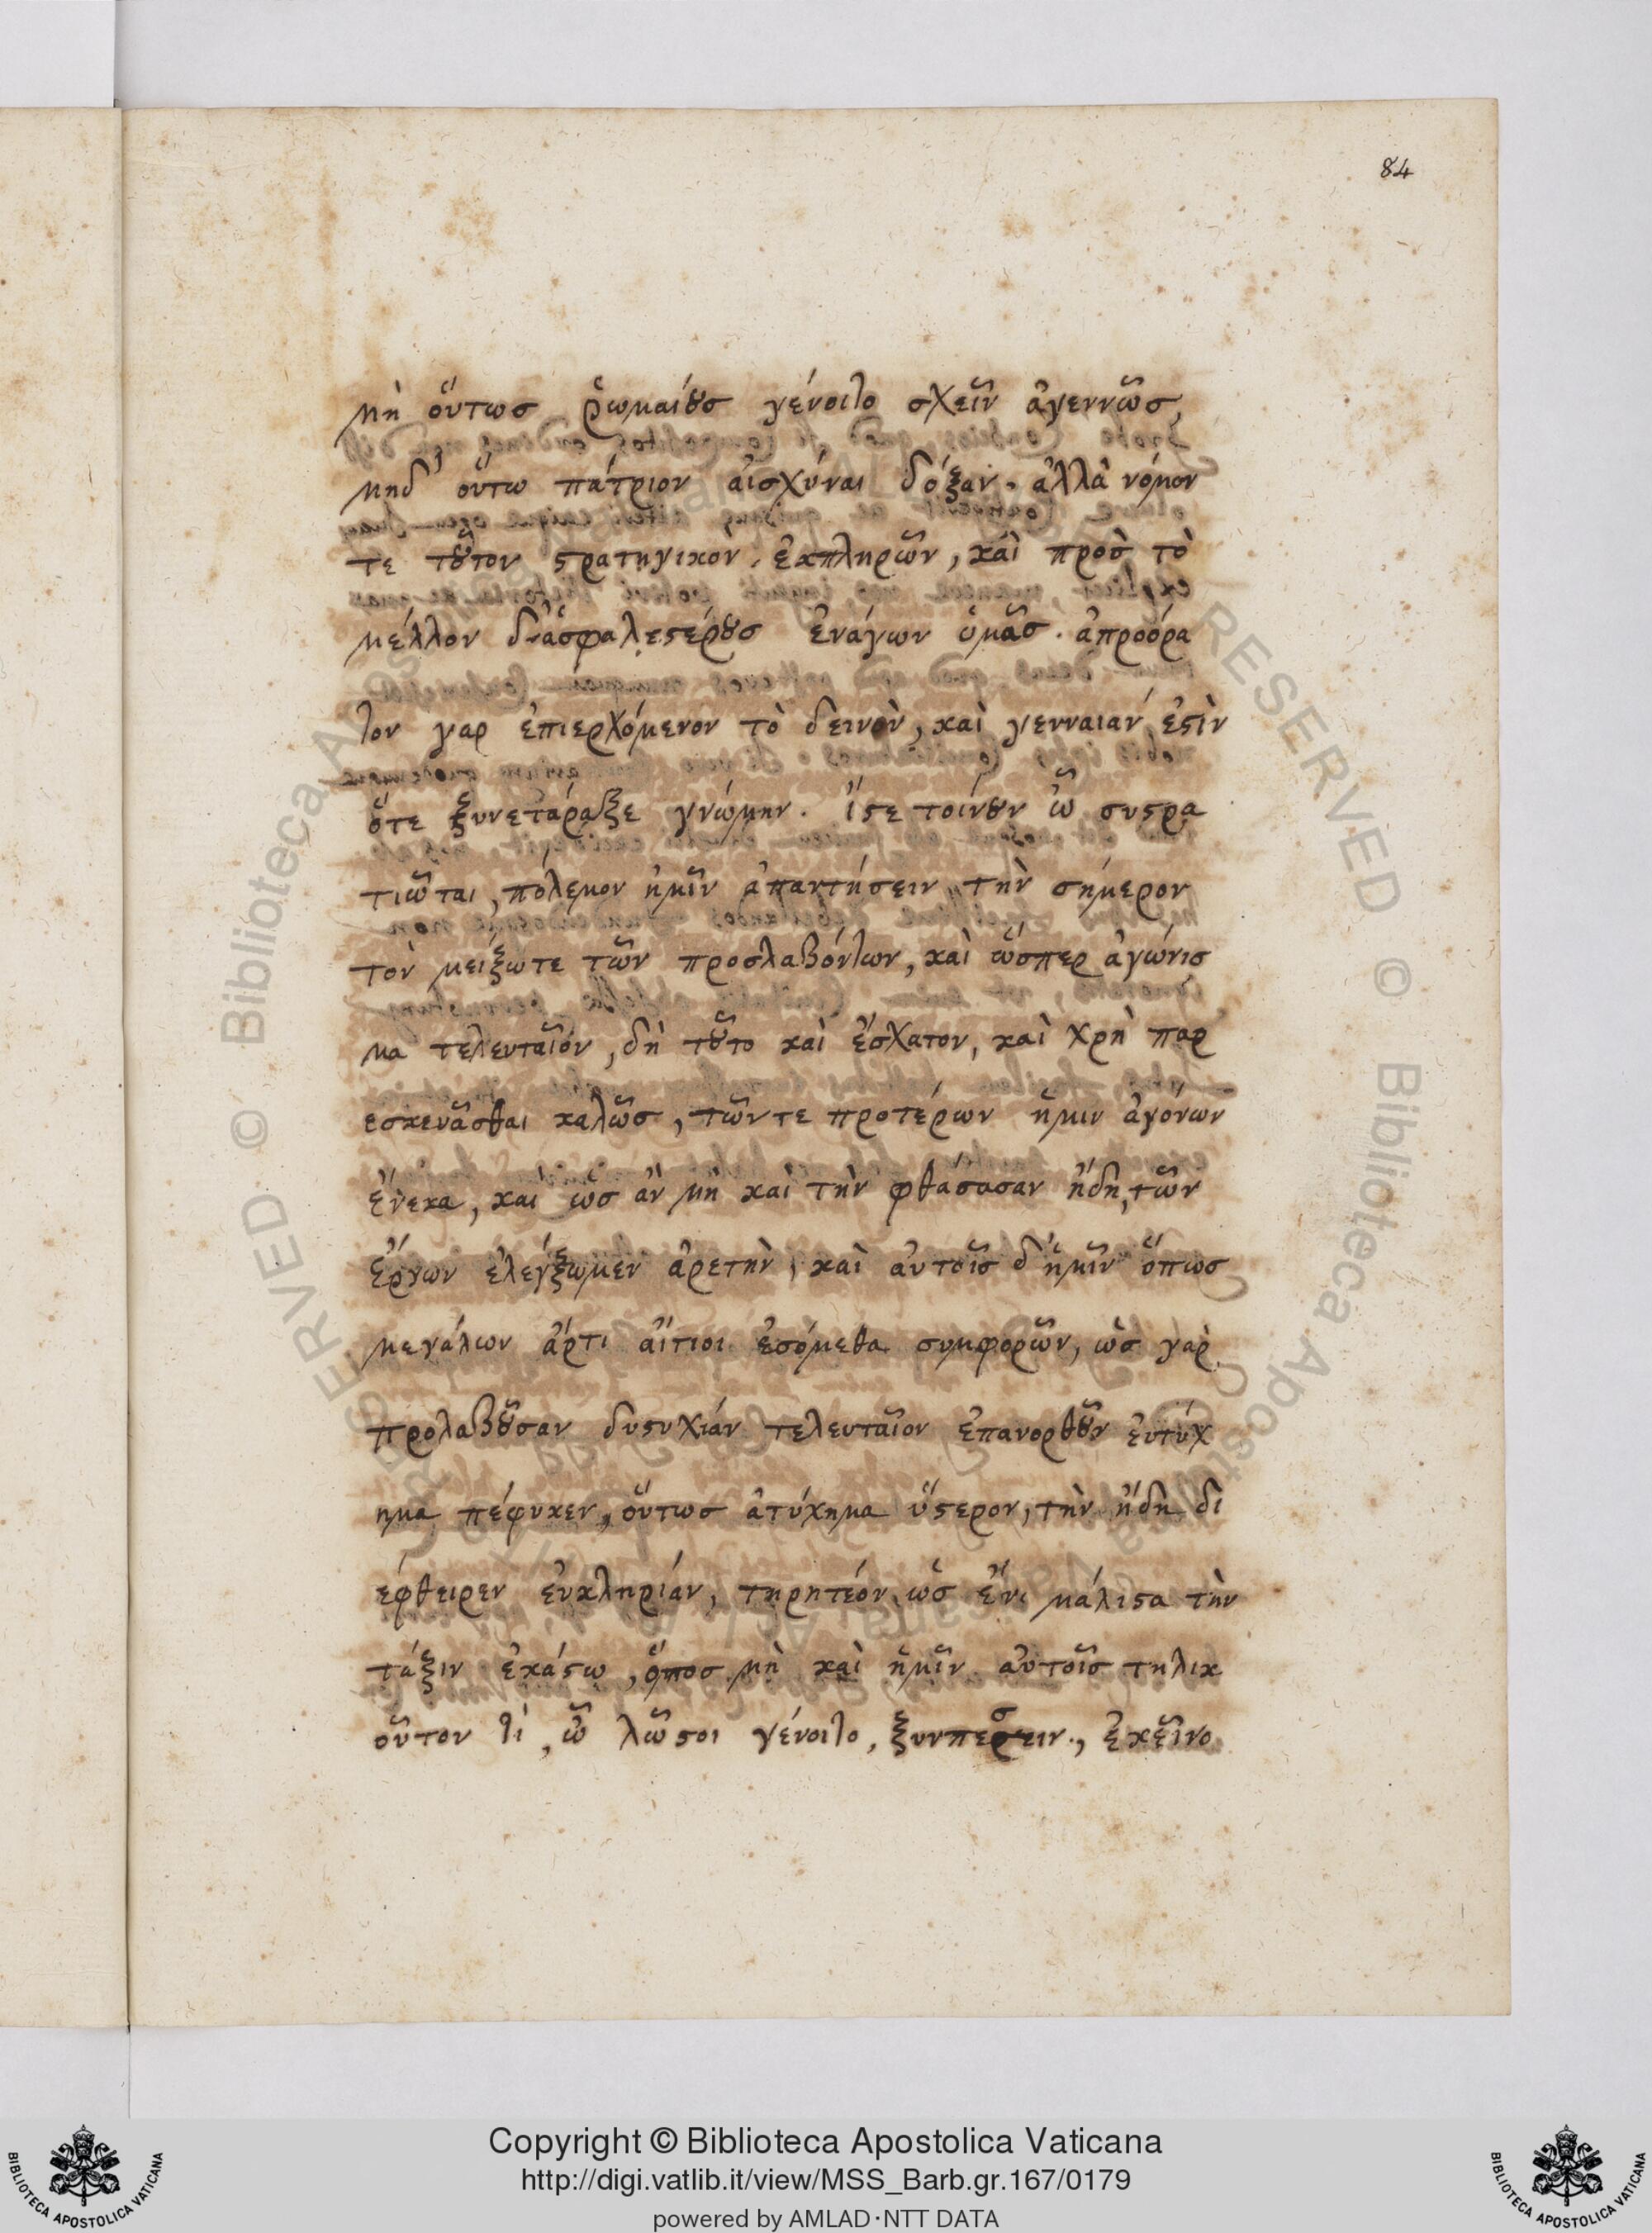 84
μὴ ὅυτωσ ῥωμαίȣσ γένοιτο σχεῖν ἀγεννῶσ,
μηδ' ὅυτω πάτριον ἀισχύναι δόξαν. ἀλλὰ νόμον
τε τȣ͂τον ϛρατηγικὸν. ἐκπληρῶν, καὶ προσ τὸ
μέλλον δ'ἀσφαλεϛέρȣσ ἐνάγων ὑμᾶσ. ἀπροόρα
τον γαρ ἐπιερχόμενον τὸ δεινὸν, καὶ γενναιάν ἐϛὶν
ὅτε ξυνετάραξε γνώμην. ἴϛε τοίνȣν ὦ συϛρα
τιῶται, πόλεμον ἡμῖν ἀπαντήσειν τὴν σήμερον
τὸν μείξωτε τῶν προσλαβόντων, καὶ ὥσπερ ἀγώνισ
μα τελευταῖόν, δὴ τȣ͂το καὶ ἔσχατον, καὶ χρὴ παρ
εσκευᾶσθαι καλῶσ, τῶν τε προτέρων ἥμιν ἀγόνων
ἕνεκα, και ὡσ ἀν μὴ καὶ τὴν φθάσασαν ἤδη, τῶν
ἔργων ἐλεγξωμεν ἀρετὴν, καὶ ἀυτοῖσ δ' ἡμῖν ὅπωσ
μεγάλων ἄρτι ἄιτιοι ἐσόμεθα συμφορῶν, ὡσ γαρ
προλαβȣ͂σαν δυϛυχιάν τελευταῖον ἐπανορθȣ͂ν ἐυτύχ
ημα πέφυκεν, ὅυτωσ ἀτύχημα ὕϛερον, τὴν ἤδη δι
έφθειρεν ἐυκληριάν, τηρητέον ὡσ ἔνι μάλιϛα τὴν
τάξιν ἑκάϛω, ὅποσ μὴ καὶ ἡμῖν ἀυτοῖσ τηλικ
οῦτον τὶ, ὦ λῶϛοι γένοιτο, ξυνπεσειν, ἐκεῖνο
Copyright © Biblioteca Apostolica Vaticana
http://digi.vatlib.it/view/MSS_Barb.gr.167/0179
powered by AMLAD·NTT DATA
BIBLIOTECA APOSTOLICA VATICANA
BIBLIOTECA APOSTOLICA VATICANA